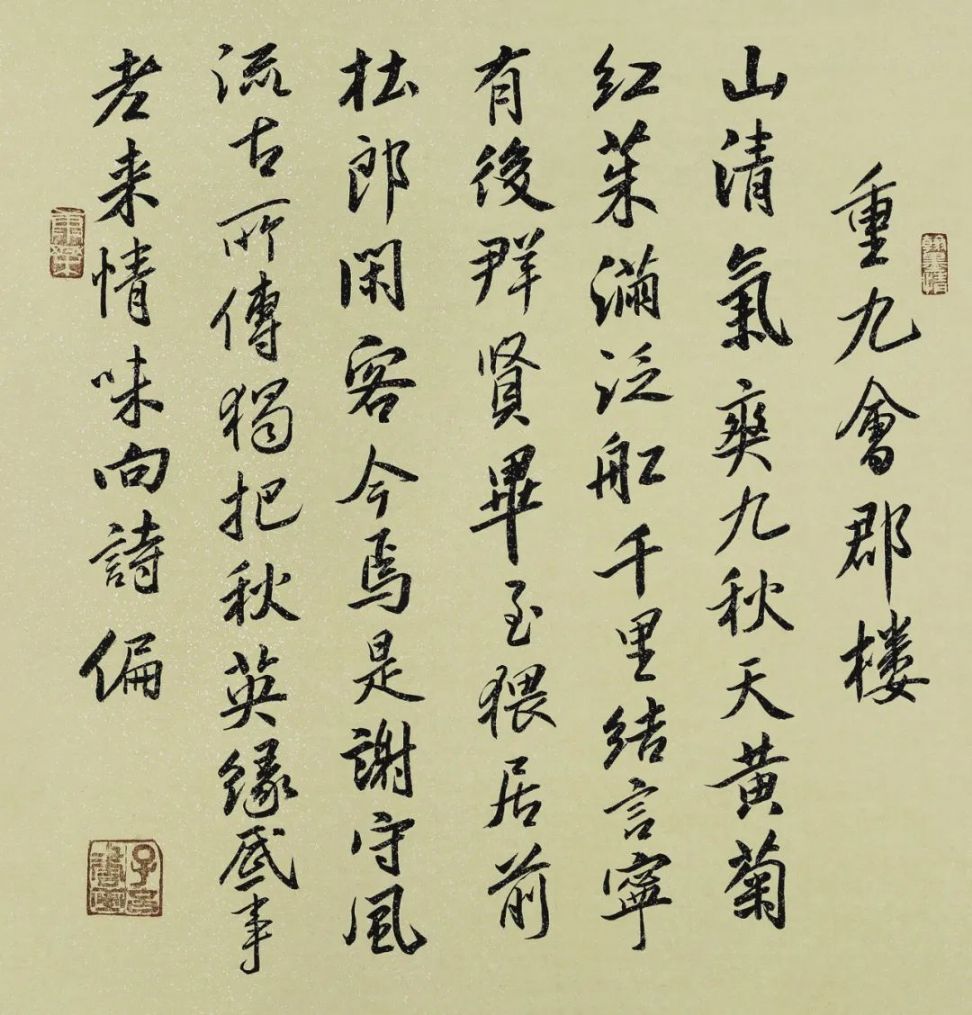 重九會郡楼
山清氣爽九秋天黄菊
紅茱滿泛舩千里结言寧
有後群賢畢至猥居前
杜郎閑客今焉是謝守風
流古所傳獨把秋英緣底事
老来情味向詩偏